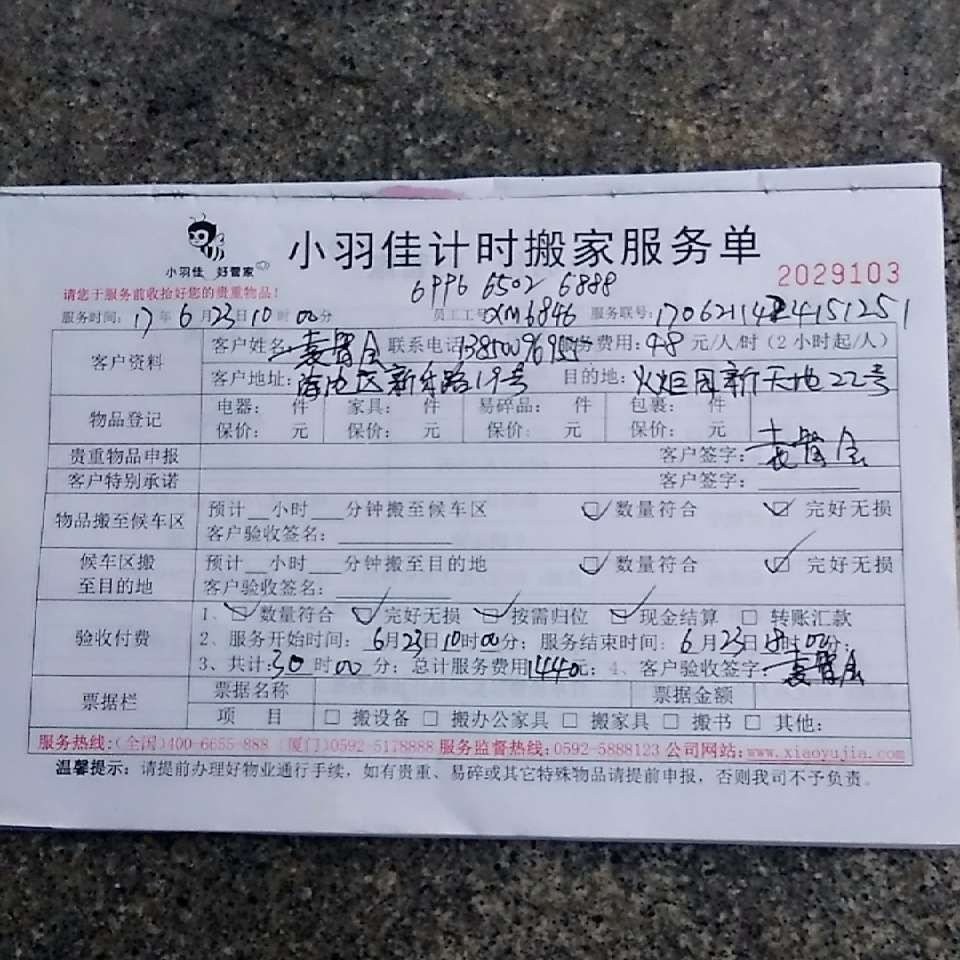 小羽佳 好管家
小羽佳计时搬家服务单
2029103
请您于服务前收拾好您的贵重物品!
6996 6502 6888
服务时间: 17年6月23日10时00分 员工工号: XM6846 服务联号:
客户资料 客户姓名: 联系电话: 服务费用: 48元/人/时(2小时起/人)
客户地址: 新乐路19号 目的地: 火炬园新天地22号
物品登记 电器: 件 家具: 件 易碎品: 件 包裹: 件
保价: 元 保价: 元 保价: 元 保价: 元
贵重物品申报 客户签字:
客户特别承诺 客户签字:
物品搬至候车区 预计__小时___分钟搬至候车区 数量符合 完好无损
客户验收签名:
候车区搬至目的地 预计__小时___分钟搬至目的地 数量符合 完好无损
客户验收签名:
验收付费 1、数量符合 完好无损 按需归位 现金结算 转账汇款
2、服务开始时间: 6月23日10时00分; 服务结束时间: 6月23日18时00分;
3、共计:30时00分; 总计服务费用1440元; 4、客户验收签字:
票据栏 票据名称 票据金额
项 目 搬设备 搬办公家具 搬家具 搬书 其他:
服务热线:(全国)400-6655-888 (厦门)0592-5178888 服务监督热线:0592-5888123 公司网站:www.xiaoyujia.com
温馨提示: 请提前办理好物业通行手续, 如有贵重、易碎或其它特殊物品请提前申报, 否则我司不予负责。